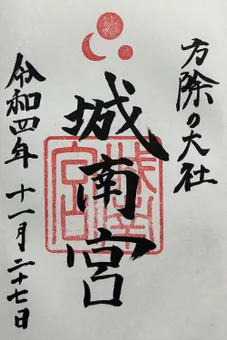 方除の大社
城南宮
令和四年 十一月二十七日
城南宮